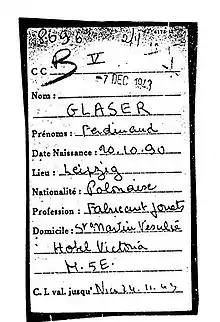 CC B V
-7 DEC 1943
Nom :
GLASER
Prénoms : Ferdinand
Date Naissance : 20.10.90
Lieu : Leipzig
Nationalité : Polonaise
Profession : Fabricant jouets
Domicile : St Martin Vesubie
Hotel Victoria
M.SE.
C. I. val. jusqu' Nice 24.11.43